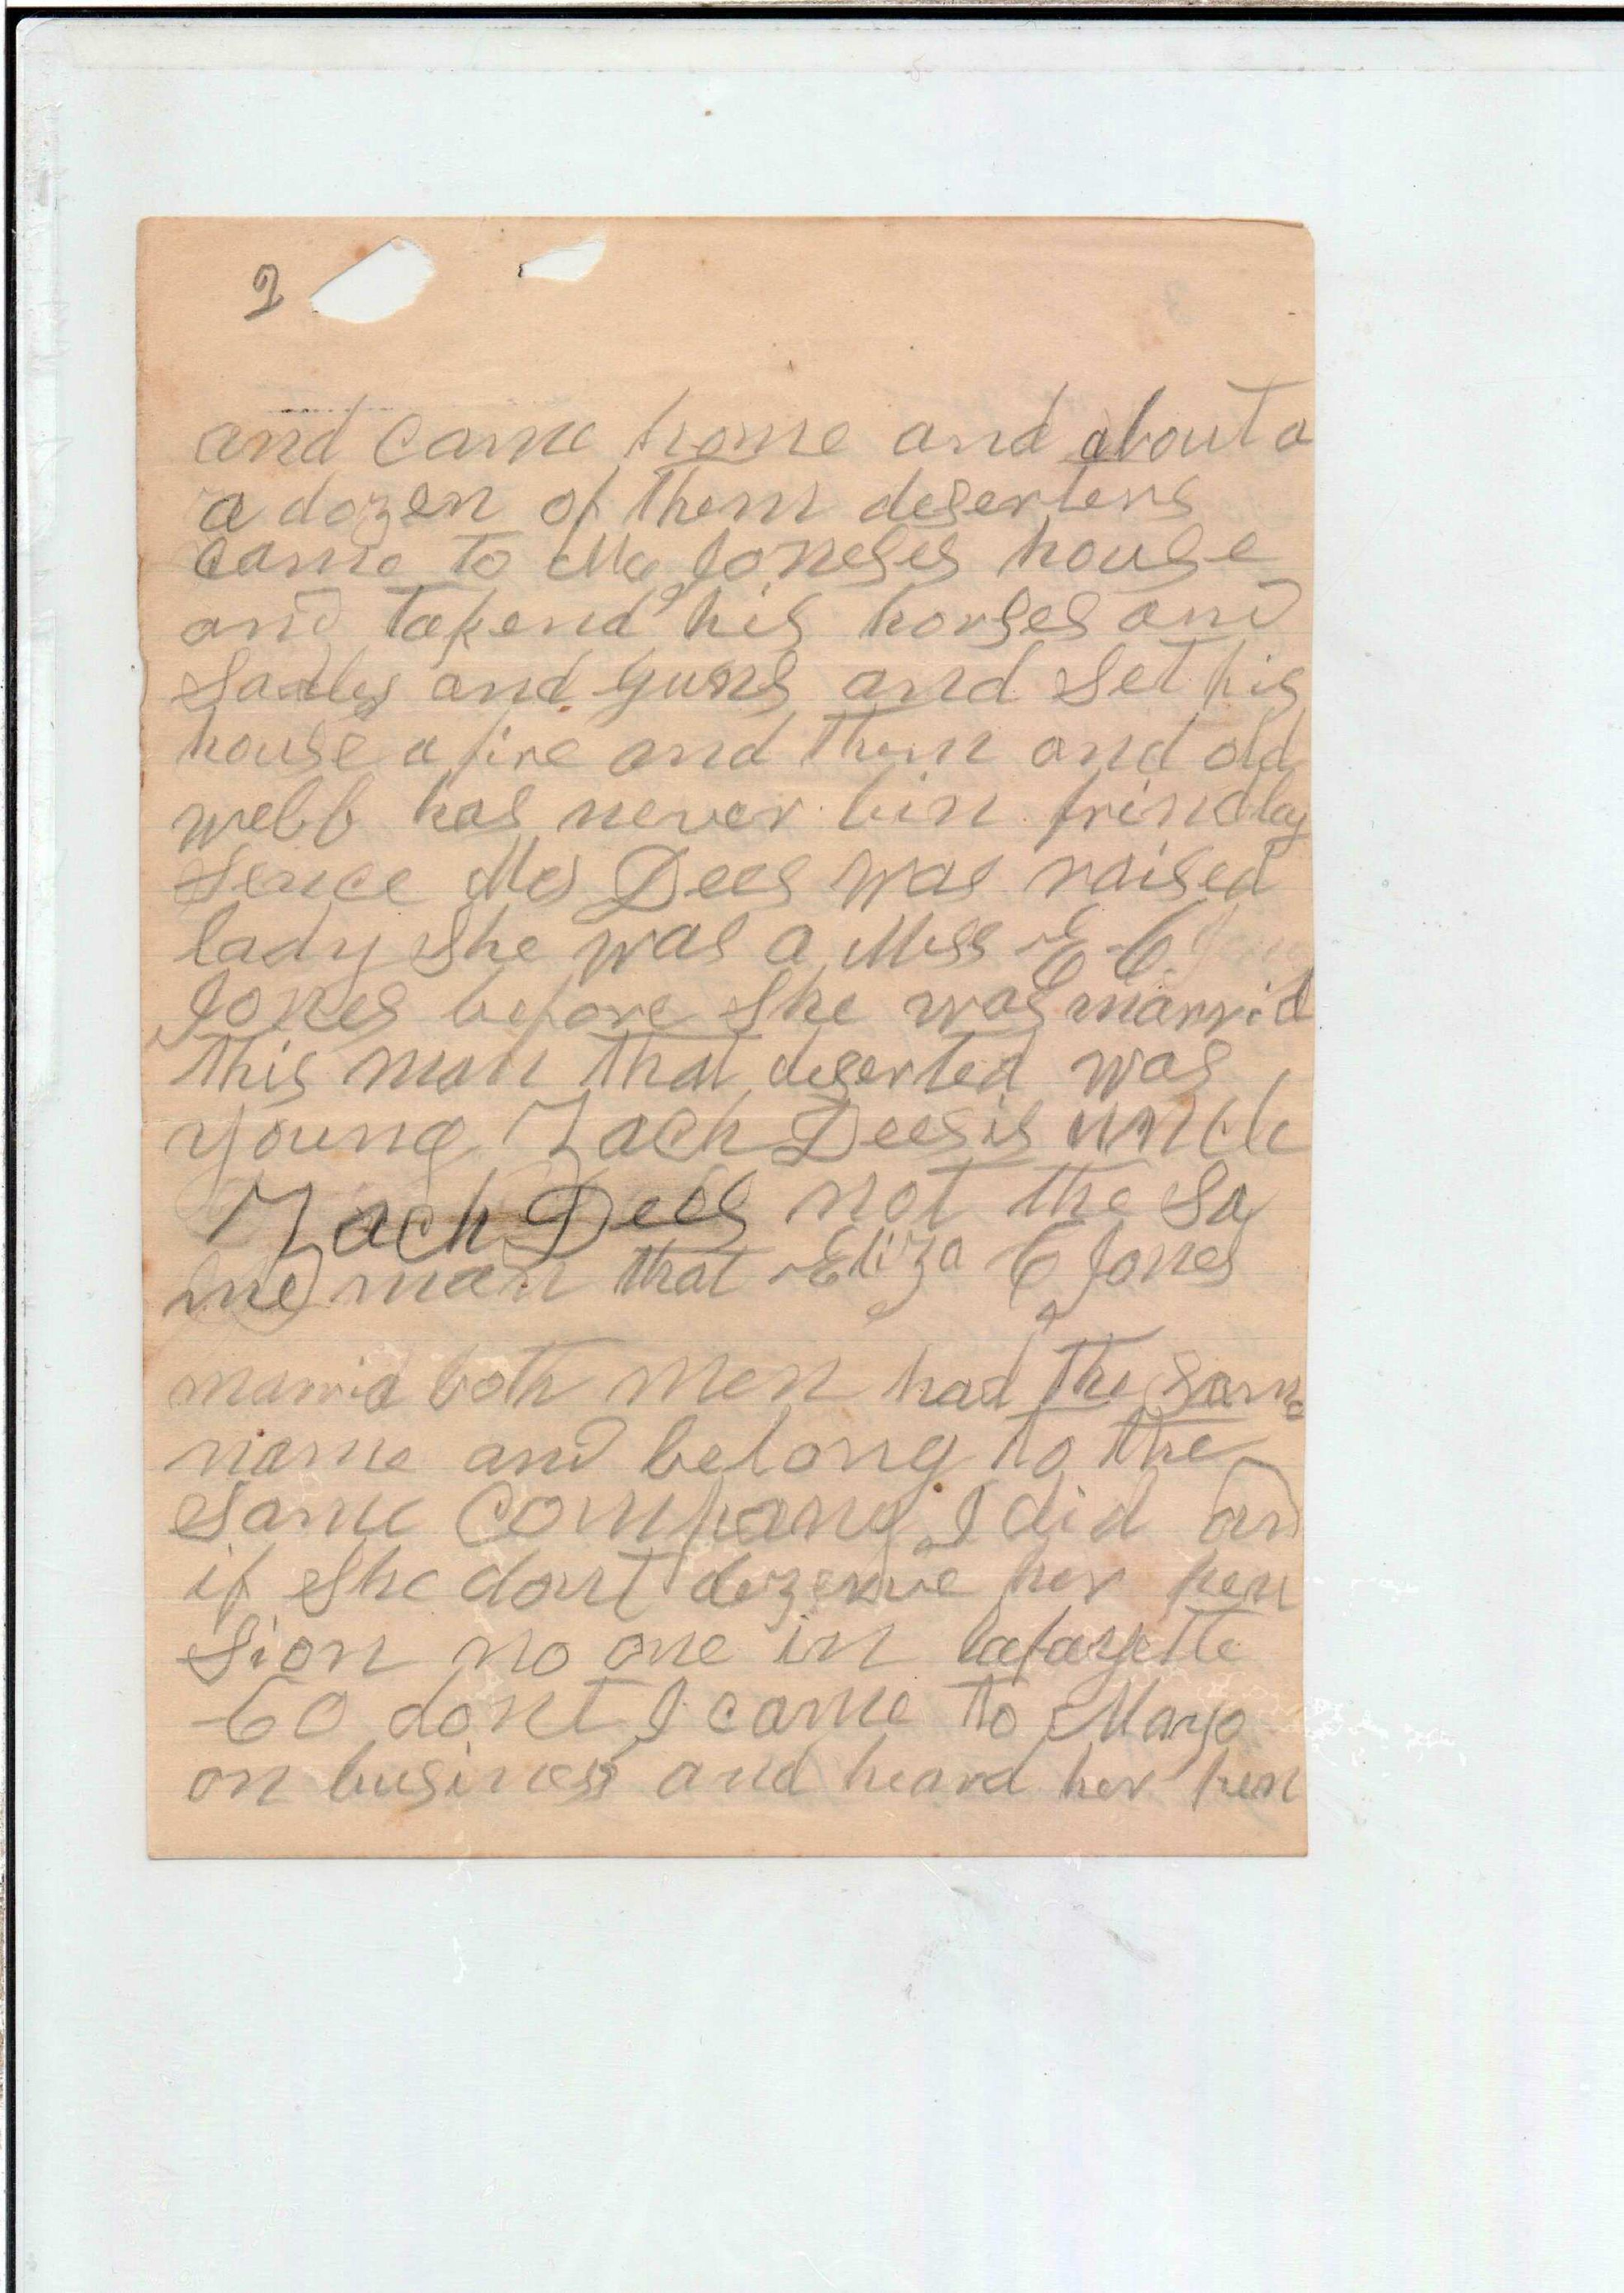 2
and came home and about a
a dozen of them deserters
came to Mr Joneses house
and takend his horses and
Sadles and guns and Set his
house a fire and them and old
webb has never bin frindlay
Sence Ms Dees was raised
lady She was a Miss E C
Jones before She was marrid
this man that deserted was
young Zach Deesis uncle
Zach Dees not the Sa
me man that Eliza C Jones
marrid both men had the Same
name and belong to the
Same Company I did an
if She dont dezerve her pen
Sion no one in lafayette
CO dont I came to Mayo
on business and heard her pen